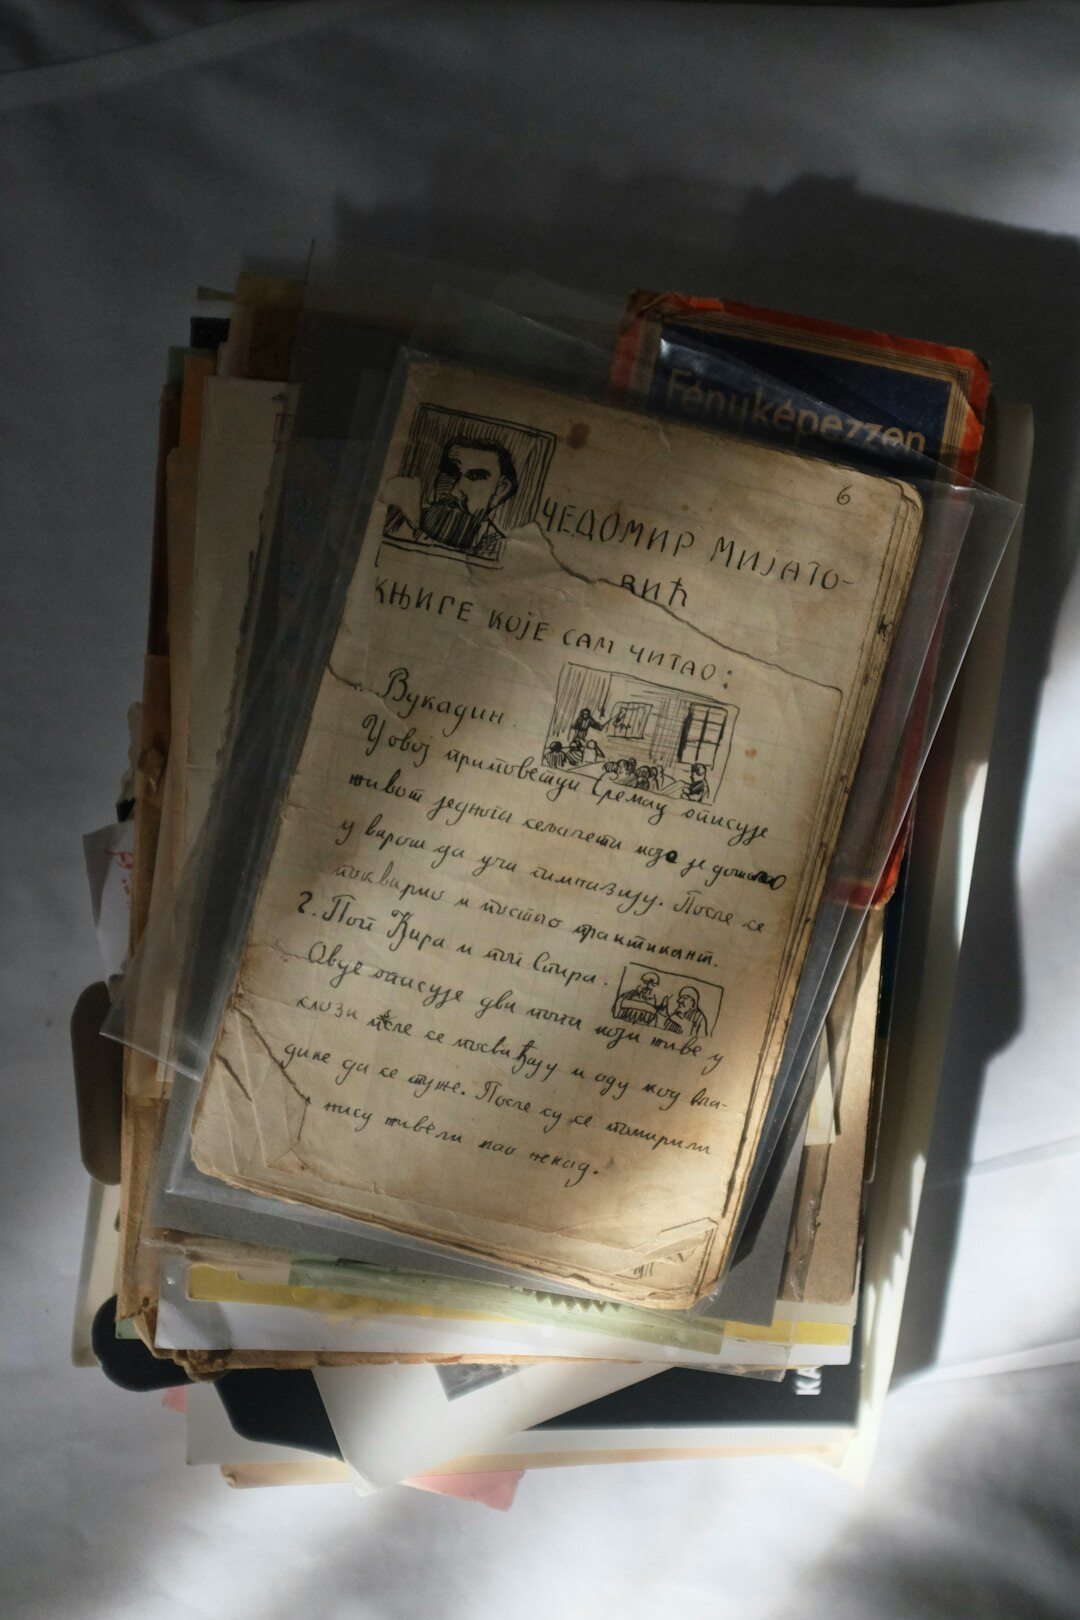 Fényképezzen
6
ЧЕДОМИР МИЈАТО-
ВИЋ
КЊИГЕ КОЈЕ САМ ЧИТАО:
Вукадин.
У овој приповетци Сремац описује
живот једнога сељачета које је дошло
у варош да учи гимназију. После се
покварио и постао практикант.
2. Поп Ћира и поп Спира.
Овде описује два попа који живе у
слози после се посвађају и оду код вла-
дике да се туже. После су се помирили
нису живели као некад.
КА